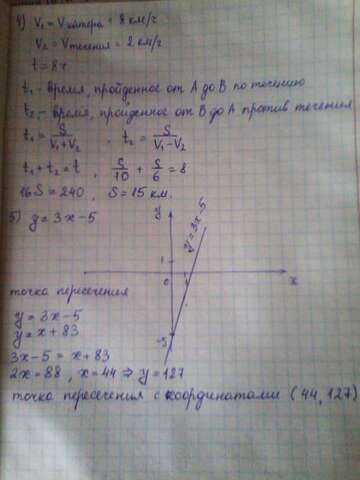 4) V₁ = Vкатера = 8 км/ч
V₂ = Vтечения = 2 км/ч
t = 8 ч
t₁ - время, пройденное от А до В по течению
t₂ - время, пройденное от В до А против течения
t₁ = S/(V₁+V₂) , t₂ = S/(V₁-V₂)
t₁ + t₂ = t , S/10 + S/6 = 8
16S = 240 , S = 15 км.
5) y = 3x - 5
y
y = 3x - 5
1
0
x
-5
точка пересечения
y = 3x - 5
y = x + 83
3x - 5 = x + 83
2x = 88 , x = 44 ⇒ y = 127
точка пересечения с координатами (44, 127)